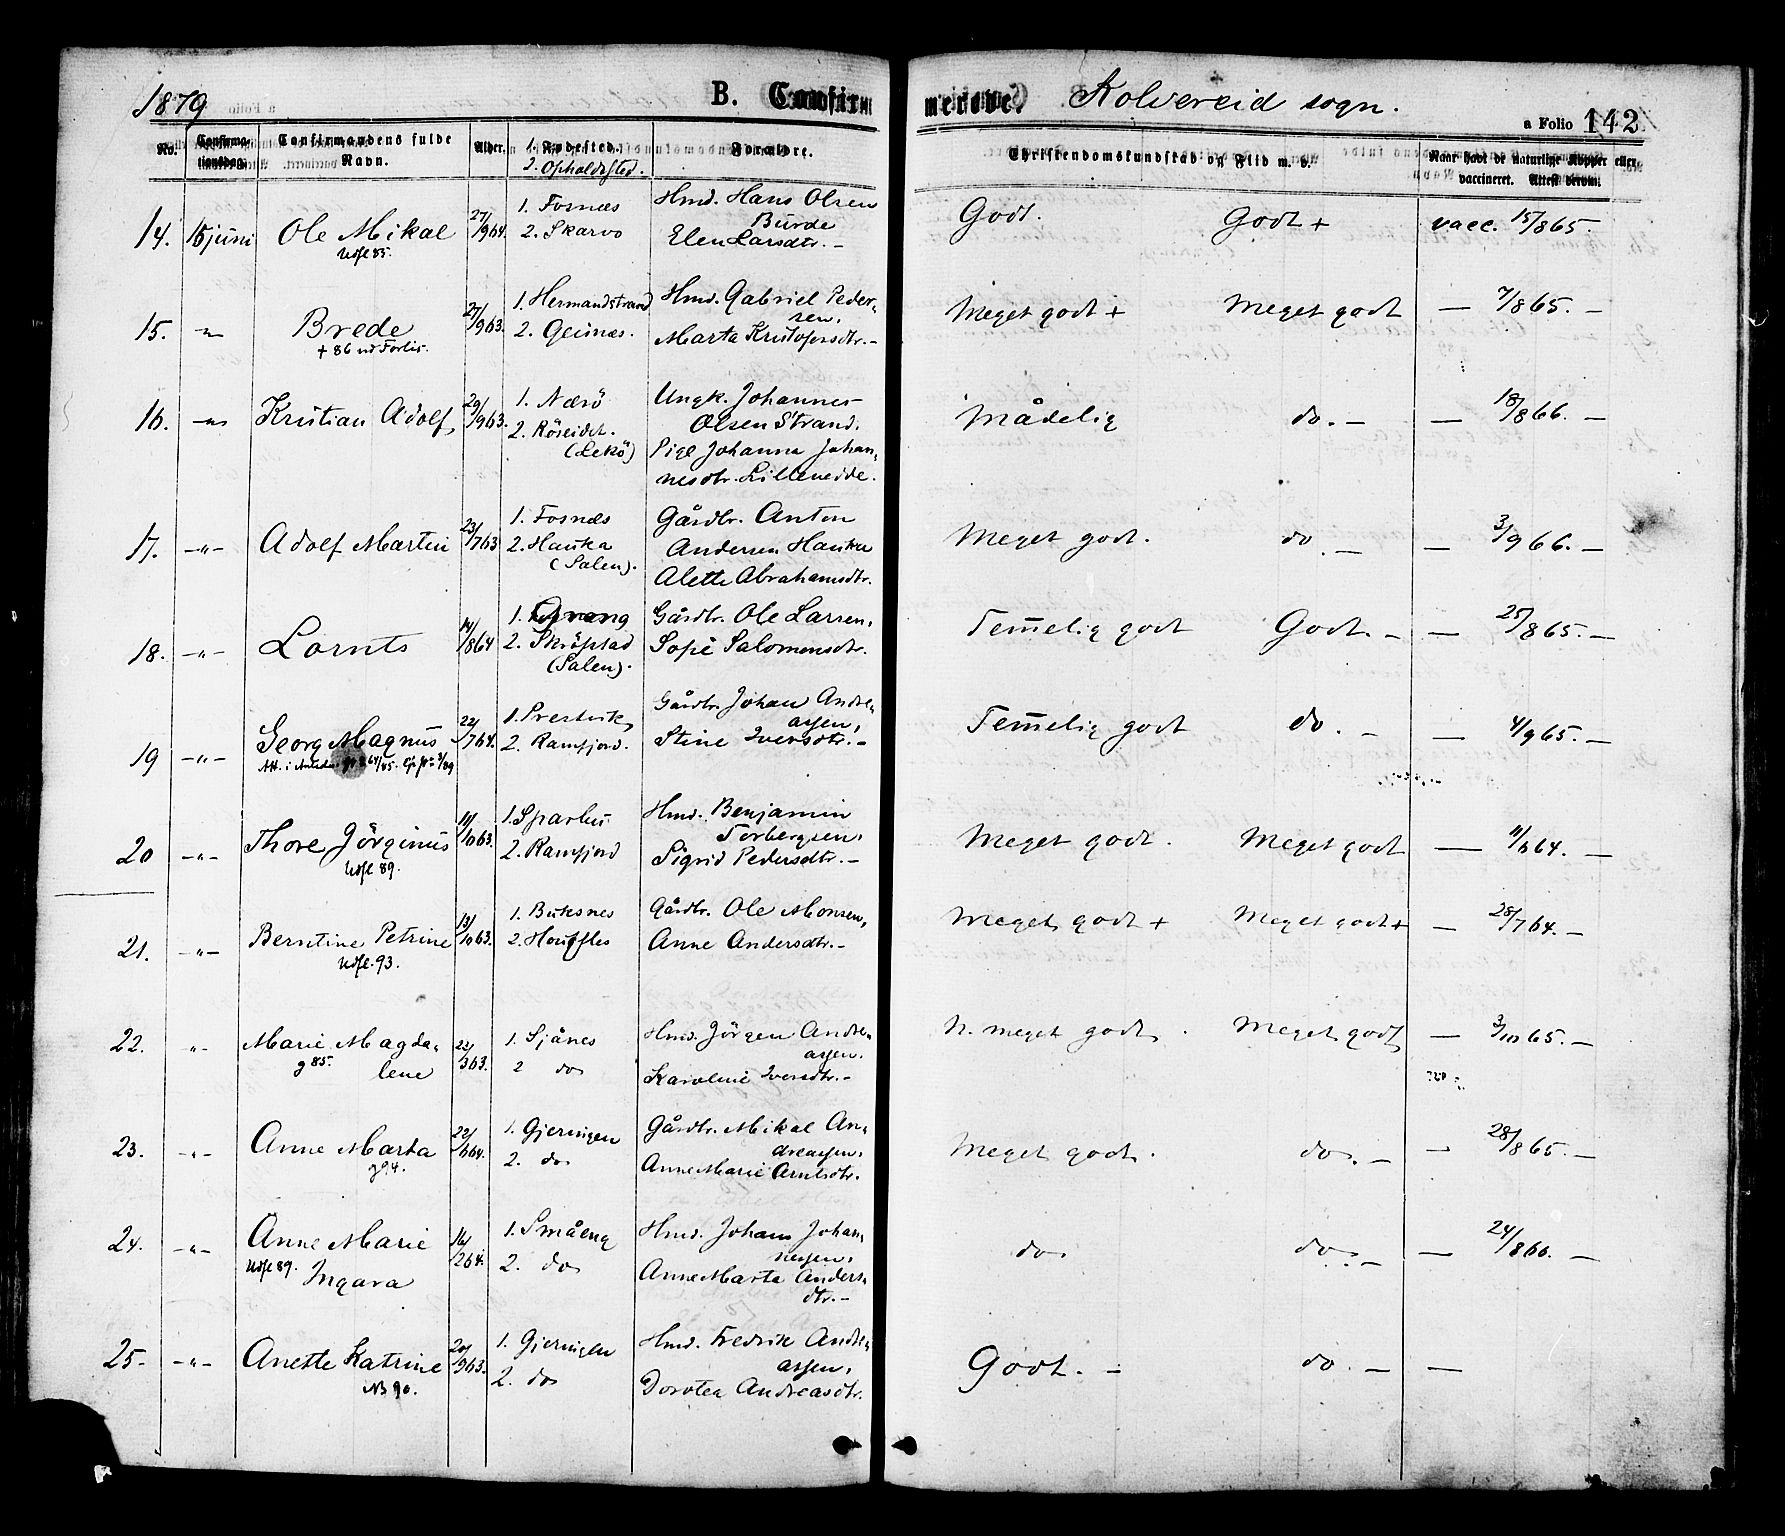 1879 B. Confirmerede. Kolvereid sogn. a Folio 142
No. Confirmationsdag. Confirmandens fulde Navn. Alder. 1. Fødested. 2. Opholdssted. Forældre. Christendomskundskab og Flid m. v. Naar havt de naturlige Kopper eller vaccineret. Attest derom.
14. 15 juni Ole Mikal 27/9 64. 1. Fosnæs Hmd. Hans Olsen Godt. Godt + vacc. 15/8 65.
Udfl 85. 2. Skarvo Burde
Elen Larsdtr. –
15. –„– Brede 27/9 63. 1. Hermandstrand Hmd. Gabriel Peder- Meget godt + Meget godt — 7/8 65. –
+ 86 ved Forlis. 2. Geisnæs. sen,
Marta Kristofersdtr. –
16. –„– Kristian Adolf 29/9 63. 1. Nærö Ungk. Johannes Mådelig do. – — 18/8 66. –
2. Röseidet. Olsen Strand.
(Lekö) Pige Johanna Johan-
nesdtr. Lilleneidde.
17. –„– Adolf Martin 23/7 63 1. Fosnæs Gårdbr. Anton Meget godt. do. – — 3/9 66. –
2. Hauka Andersen Hauka
(Salen). Alette Abrahamsdtr.
18. –„– Lornts 14/8 64 1. Grong Gårdbr. Ole Larsen, Temmelig godt Godt. – — 25/8 65. –
2. Skröpstad Sofie Salomonsdtr.
(Salen).
19 –„– Georg Magnus 22/7 64. 1. Prestvik Gårdbr. Johan Andre- Temmelig godt do. – — 4/9 65. –
2. Ramfjord. assen,
Stine Iversdtr. –
20 –„– Thore Jörginus 11/10 63. 1. Sparhus Hmd. Benjamin Meget godt. Meget godt — 64. –
Udfl 89. 2. Ramfjord Torbergsen,
Sigrid Pedersdtr. –
21. –„– Berntine Petrine 13/10 63. 1. Buksnes Gårdbr. Ole Monsen, Meget godt + Meget godt + — 28/7 64. –
Udfl. 93. 2. Houffles Anne Andersdtr. –
22. „ Marie Magda- 22/3 63. 1. Sjånes Hmd. Jörgen Andre- N. meget godt. Meget godt — 3/10 65. –
g 85. lene 2 do assen.
Karoline Iversdtr. –
23. –„– Anne Marta 22/6 64. 1. Gjeringen Gårdbr. Mikal An- Meget godt. do. – — 28/8 65. –
g 94. 2. do dreassen,
Anne Marie Arntsdtr.
24. –„– Anne Marie 16/2 64. 1. Småeng Hmd. Johans Johan- do do. – — 24/8 66. –
Udfl 89. Ingara 2. do nessen,
Anne Marta Anders-
dtr. –
25. –„– Anette Katrine 20/9 63. 1. Gjeringen Hmd. Fredrik Andre- Godt. – do. – —
NB 90. 2. do assen,
Dorotea Andreasdtr.